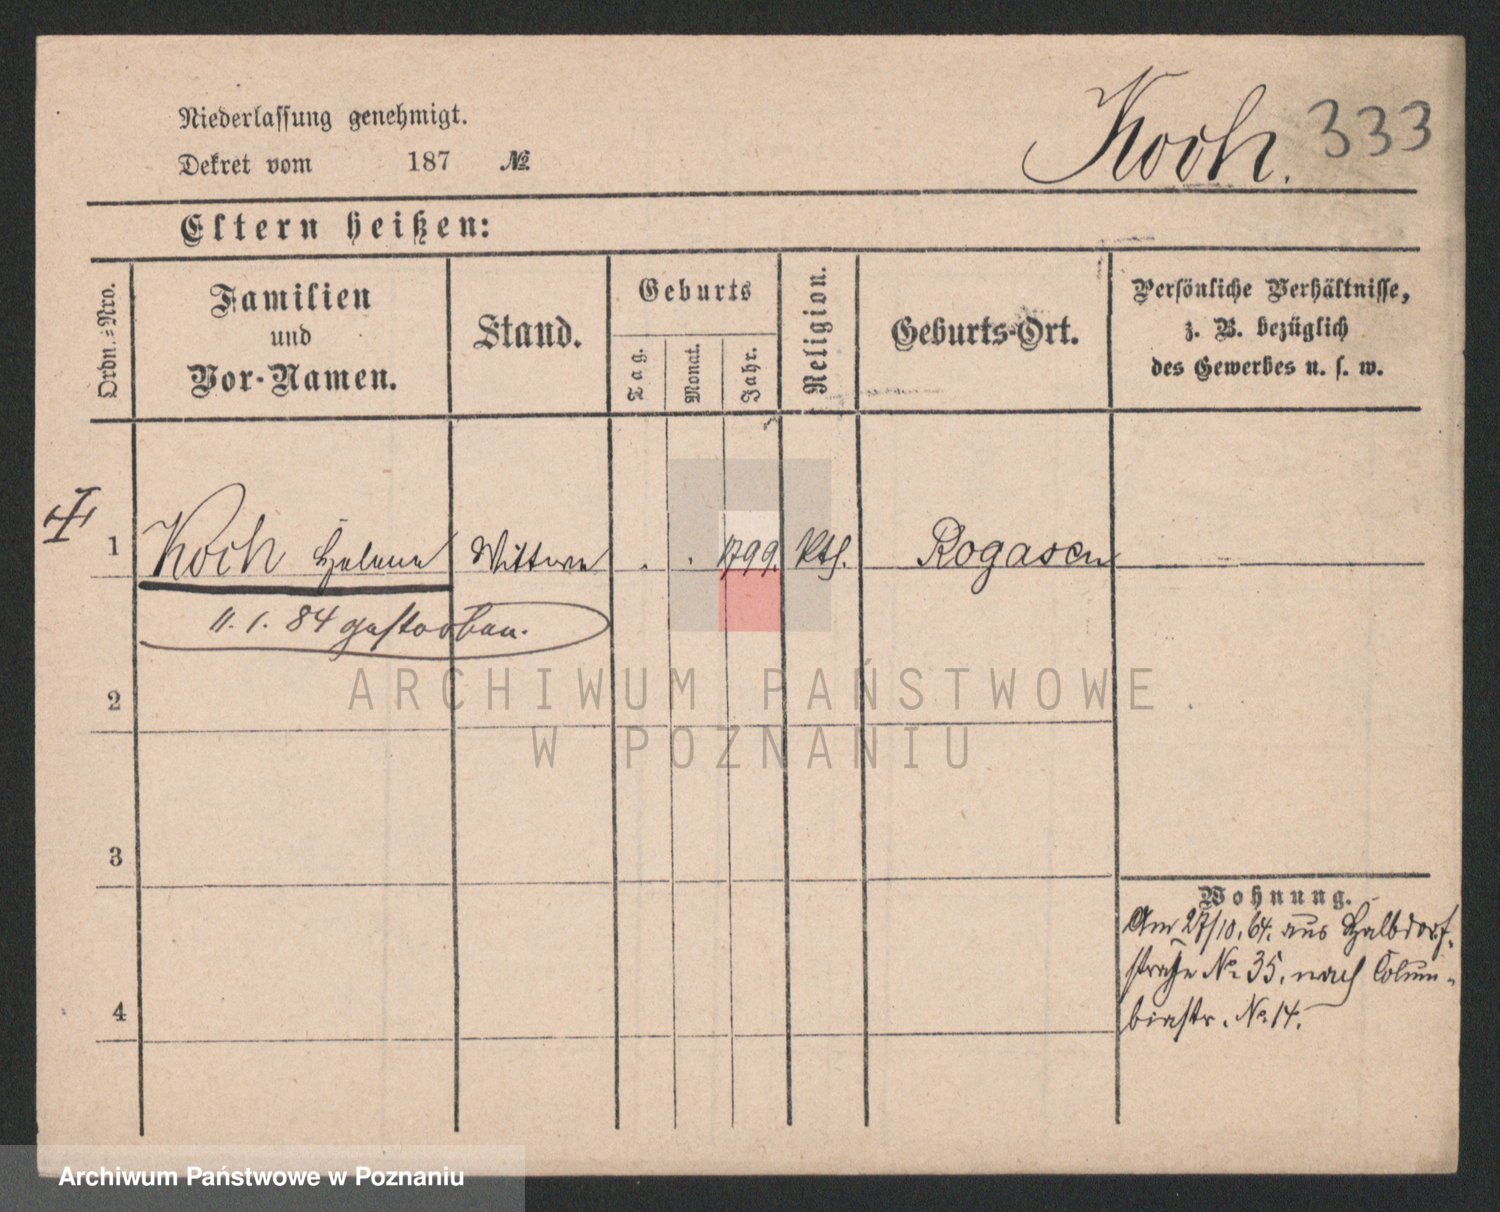 Niederlassung genehmigt.
Dekret vom 187 №
Koch. 333
Eltern heißen:
Ordn.-Nro.
Familien
und
Vor-Namen.
Stand.
Geburts
Tag.
Monat.
Jahr.
Religion.
Geburts-Ort.
Persönliche Verhältnisse,
z. B. bezüglich
des Gewerbes u. s. w.
1 Koch Helena Wittwe . . 1799. kth. Rogasen
11. 1. 84 gestorben.
2
3
4
Wohnung.
Am 27/10. 64. aus Halbdorf-
straße No 35. nach Colum-
biastr. No 14.
ARCHIWUM PAŃSTWOWE
W POZNANIU
Archiwum Państwowe w Poznaniu